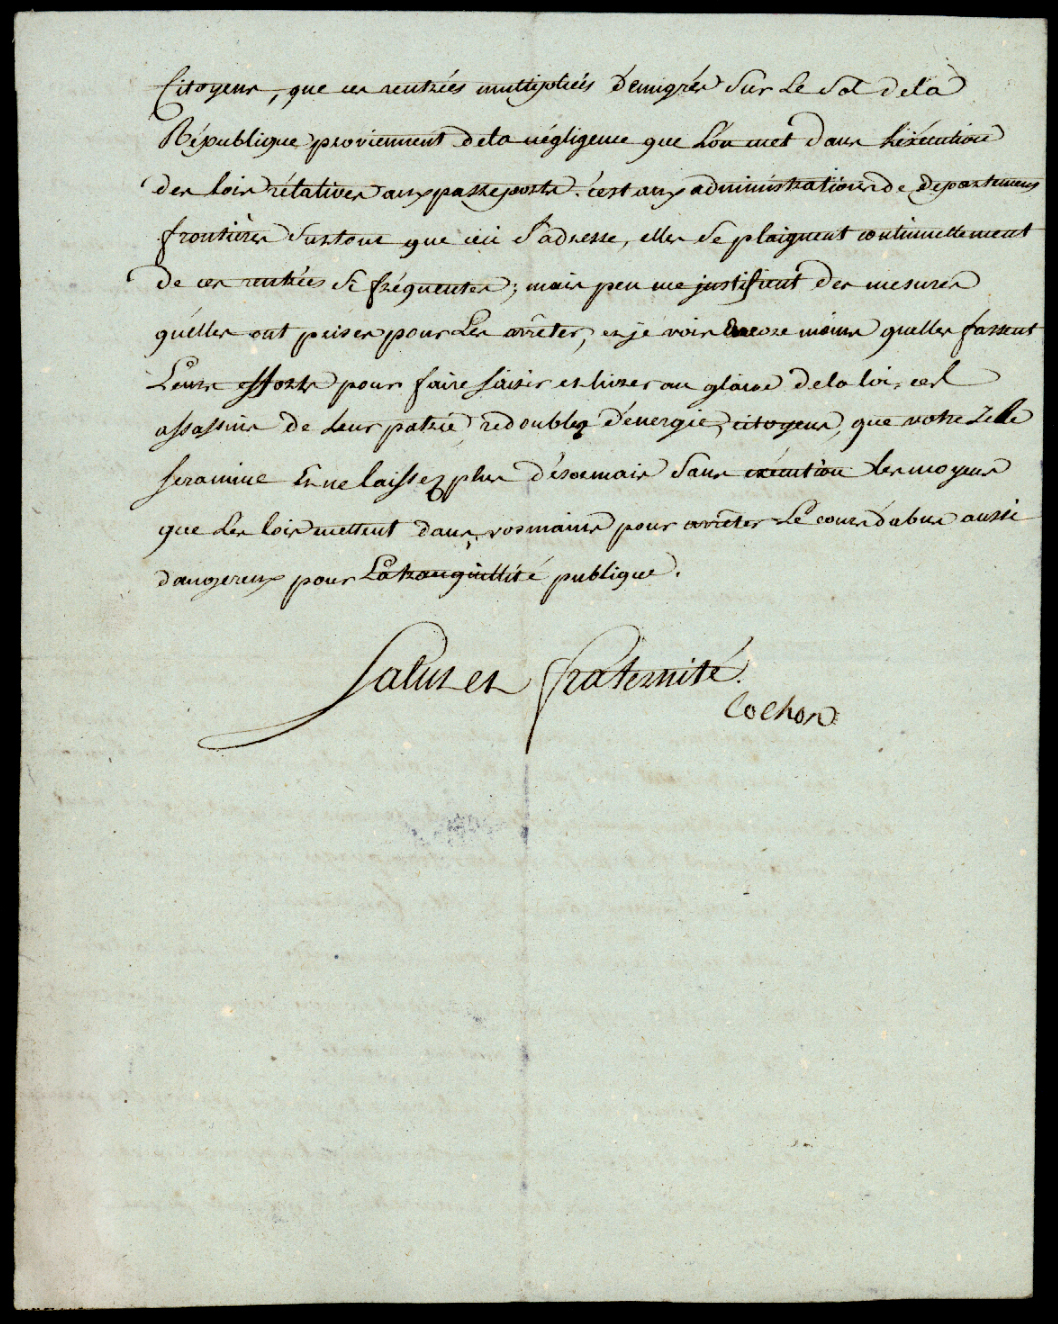 Citoyens, que ces rentrées multipliées d'emigrés sur le sol de la
République proviennent de la négligence que l'on met dans l'exécution
des loix rélatives aux passeports. c'est aux administrations de departemens
frontières surtout que ceci s'adresse, elles se plaignent continuellement
de ces rentrées si fréquentes; mais peu me justifient des mesures
qu'elles ont prises pour les arrêter, et je vois encore moins quelles fassent
leurs efforts pour faire saisir et livrer au glaive de la loi, ces
assassins de leur patrie, redoublez d'énergie, citoyens, que votre zelle
seranime et ne laissez plus désormais sans exécution les moyens
que les loix mettent dans vos mains pour arrêter le cours d'abus aussi
dangereux pour la tranquillité publique.
Salut et fraternité.
Cochon